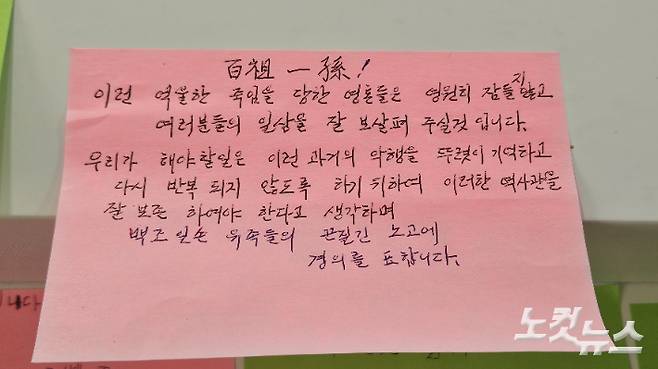 百祖一孫!
이런 억울한 죽임을 당한 영혼들은 영원히 잠들지 않고
여러분들의 일상을 잘 보살펴 주실것 입니다.
우리가 해야할일은 이런 과거의 악행을 뚜렷이 기억하고
다시 반복 되지 않도록 하기 위하여 이러한 역사관을
잘 보존 하여야 한다고 생각하며
백조일손 유족들의 끈질긴 노고에
경의를 표합니다.
노컷뉴스